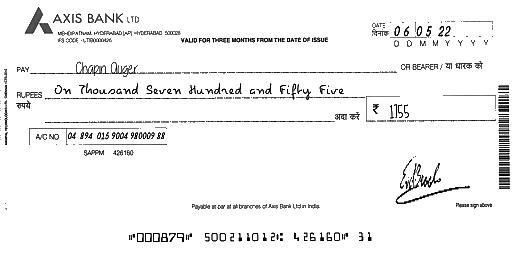 AXIS BANK LTD
MEHDIPATNAM, HYDERABAD [AP] - HYDERABAD 500028
IFS CODE - UTIB0000426
VALID FOR THREE MONTHS FROM THE DATE OF ISSUE
DATE
दिनांक 06 05 22
D D M M Y Y Y Y
PAY Chapin Auger OR BEARER / या धारक को
RUPEES On Thousand Seven Hundred and Fifty Five
रुपये अदा करें ₹ 1755
A/C NO 04 894 015 9004 980009 88
SAPPM 426160
Payable at par at all branches of Axis Bank Ltd in India.
Please sign above
"000879" 500211012: 426160" 31